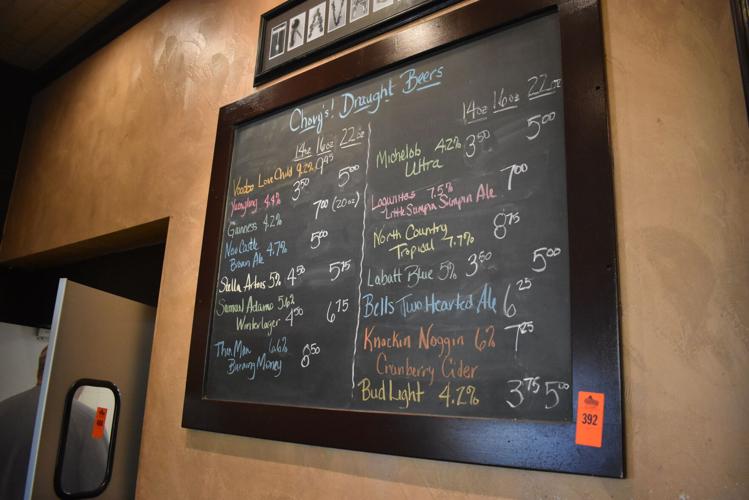 TRAVEL
Chovy's! Draught Beers
14oz 16oz 22oz
Voodoo Love Child 9.2% 9.45
Yuengling 4.4% 3.50 5.00
Guinness 4.2% 7.00 (20oz)
New Castle
Brown Ale 4.7% 5.00
Stella Artois 5% 4.50 5.75
Samuel Adams 5.6%
Winter lager 4.50 6.75
Thin Man 6.6%
Burning Money 8.50
14oz 16oz 22oz
Michelob 4.2% 3.50 5.00
Ultra
Lagunitas 7.5% 7.00
Little Sumpin Sumpin Ale
North Country 8.75
Tropical 7.7%
Labatt Blue 5% 3.50 5.00
Bells Two Hearted Ale 6.25
Knockin Noggin 6% 7.25
Cranberry Cider
Bud Light 4.2% 3.75 5.00
392